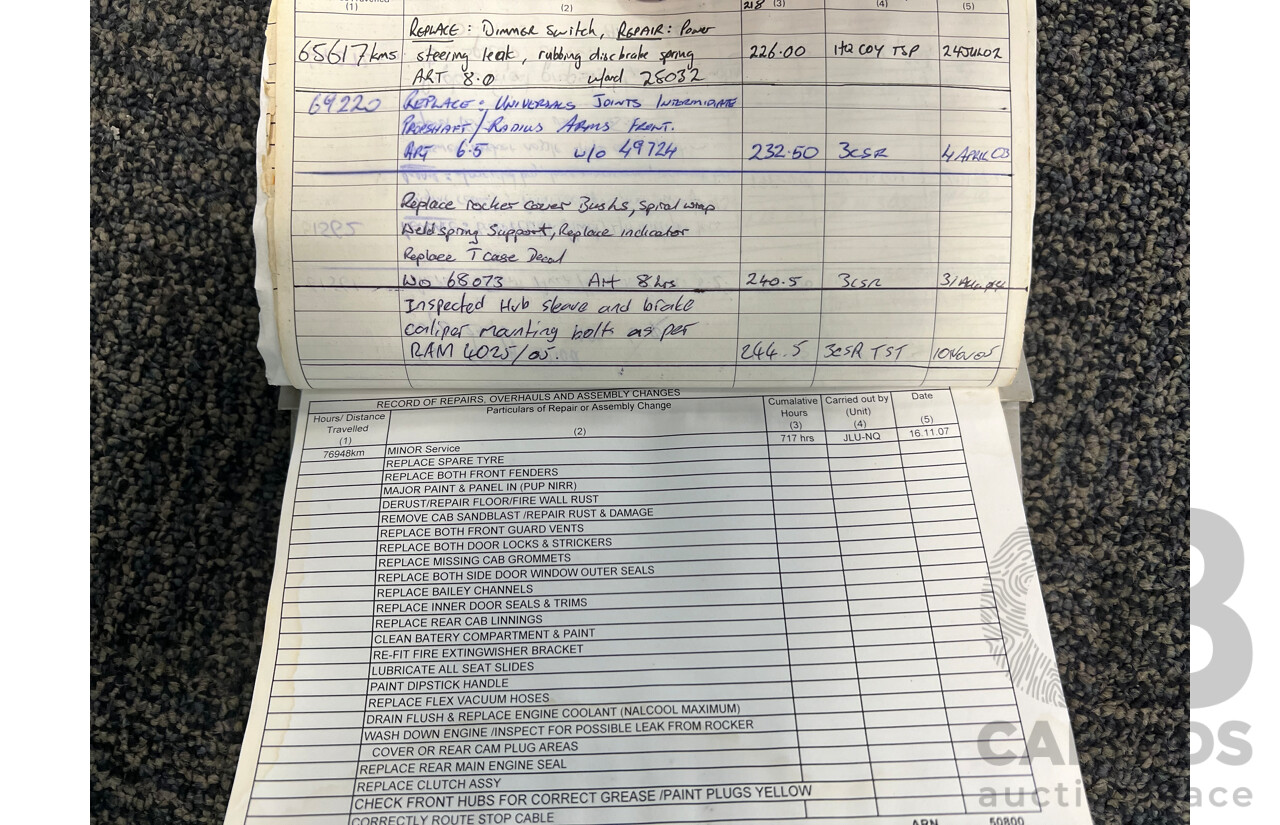 (1) (2) 218 (3) (4) (5)
REPLACE: Dimmer switch, REPAIR: Power
65617kms steering leak, rubbing disc brake spring 226.00 1HQ COY TSP 24JUL02
ART 8.0 w/ord 28032
69220 REPLACE: UNIVERSALS JOINTS INTERMEDIATE
PROPSHAFT/RADIUS ARMS FRONT.
ART 6.5 w/o 49724 232.50 3CSR 4 APRIL 03
Replace rocker cover Bushs, Spiral wrap
Weld spring Support, Replace indicator
Replace T case Decal
WO 68073 Art 8hrs 240.5 3CSR
Inspected Hub sleave and brake
caliper mounting bolts as per
RAM 4025/05. 244.5 3CSR TST 10Nov05
RECORD OF REPAIRS, OVERHAULS AND ASSEMBLY CHANGES
Hours/ Distance Travelled (1) Particulars of Repair or Assembly Change (2) Cumalative Hours (3) Carried out by (Unit) (4) Date (5)
76948km MINOR Service 717 hrs JLU-NQ 16.11.07
REPLACE SPARE TYRE
REPLACE BOTH FRONT FENDERS
MAJOR PAINT & PANEL IN (PUP NIRR)
DERUST/REPAIR FLOOR/FIRE WALL RUST
REMOVE CAB SANDBLAST /REPAIR RUST & DAMAGE
REPLACE BOTH FRONT GUARD VENTS
REPLACE BOTH DOOR LOCKS & STRICKERS
REPLACE MISSING CAB GROMMETS
REPLACE BOTH SIDE DOOR WINDOW OUTER SEALS
REPLACE BAILEY CHANNELS
REPLACE INNER DOOR SEALS & TRIMS
REPLACE REAR CAB LINNINGS
CLEAN BATERY COMPARTMENT & PAINT
RE-FIT FIRE EXTINGWISHER BRACKET
LUBRICATE ALL SEAT SLIDES
PAINT DIPSTICK HANDLE
REPLACE FLEX VACUUM HOSES
DRAIN FLUSH & REPLACE ENGINE COOLANT (NALCOOL MAXIMUM)
WASH DOWN ENGINE /INSPECT FOR POSSIBLE LEAK FROM ROCKER
COVER OR REAR CAM PLUG AREAS
REPLACE REAR MAIN ENGINE SEAL
REPLACE CLUTCH ASSY
CHECK FRONT HUBS FOR CORRECT GREASE /PAINT PLUGS YELLOW
CORRECTLY ROUTE STOP CABLE
ARN 50800